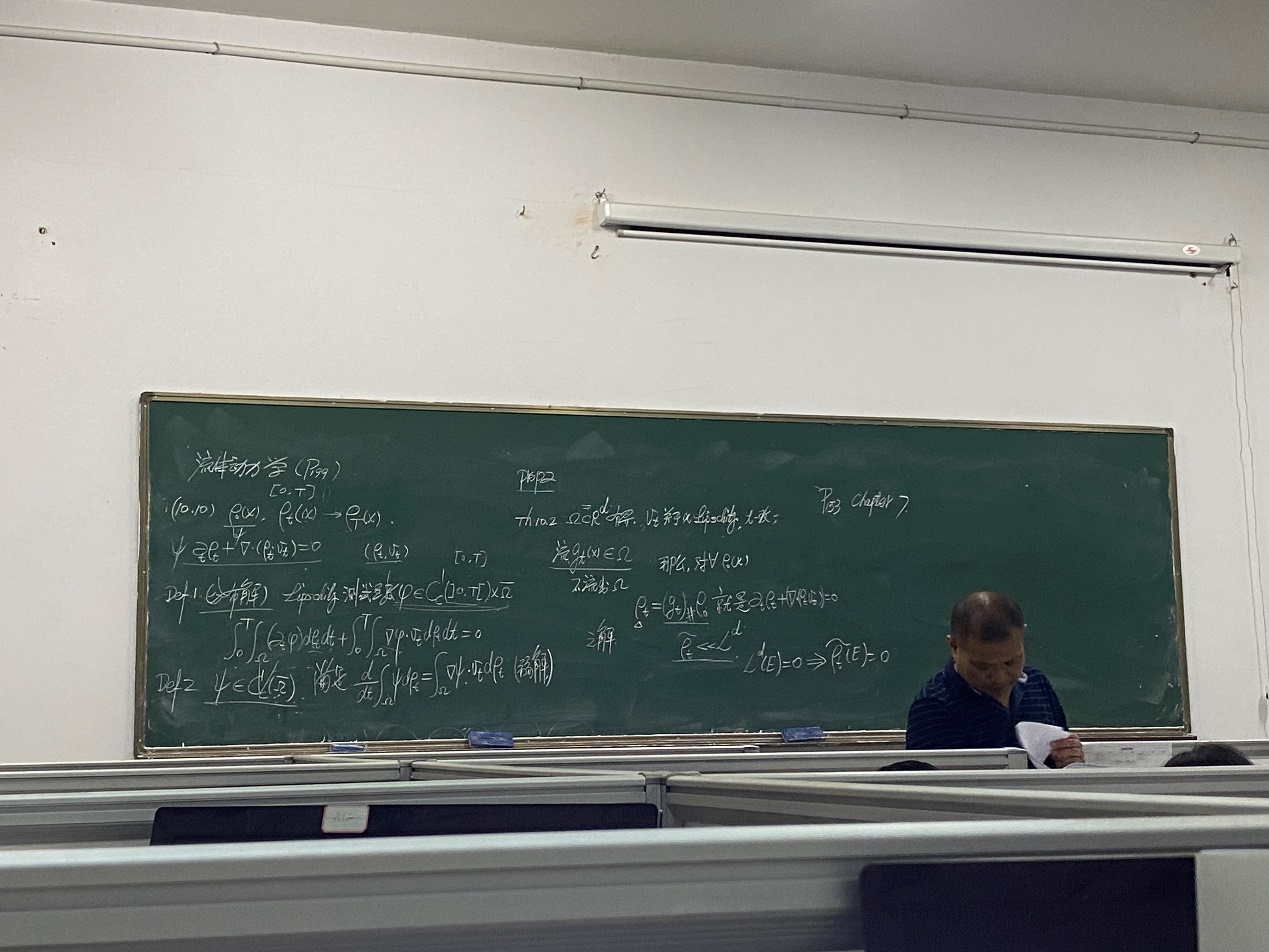 流体动力学 (P199)
[0,T]
(10.10) ρ₀(x), ρₜ(x) → ρ_T(x).
ψ ∂ₜρₜ + ∇·(ρₜvₜ) = 0 (ρₜ,vₜ) [0,T]
Def 1. (分布解) Lipschitz 测试函数 φ ∈ C_c^1(]0,T[)×Ω̄
∫₀ᵀ∫_Ω (∂ₜφ)dρₜdt + ∫₀ᵀ∫_Ω ∇φ·vₜdρₜdt = 0
Def 2 ψ ∈ C_c^1(Ω̄). 满足 d/dt ∫_Ω ψdρₜ = ∫_Ω ∇ψ·vₜdρₜ (弱解)
P202
Th 10.2 Ω ⊂ ℝᵈ 解, vₜ 关于 x Lipschitz, t 一致;
流 gₜ(x) ∈ Ω 那么, 对∀ρ₀(x)
不流出Ω
ρₜ = (gₜ)_# ρ₀ 就是 ∂ₜρₜ + ∇·(ρₜvₜ) = 0
之解
ρ̃ₜ << 𝓛ᵈ
𝓛ᵈ(E) = 0 ⇒ ρ̃ₜ(E) = 0
P153 Chapter 7